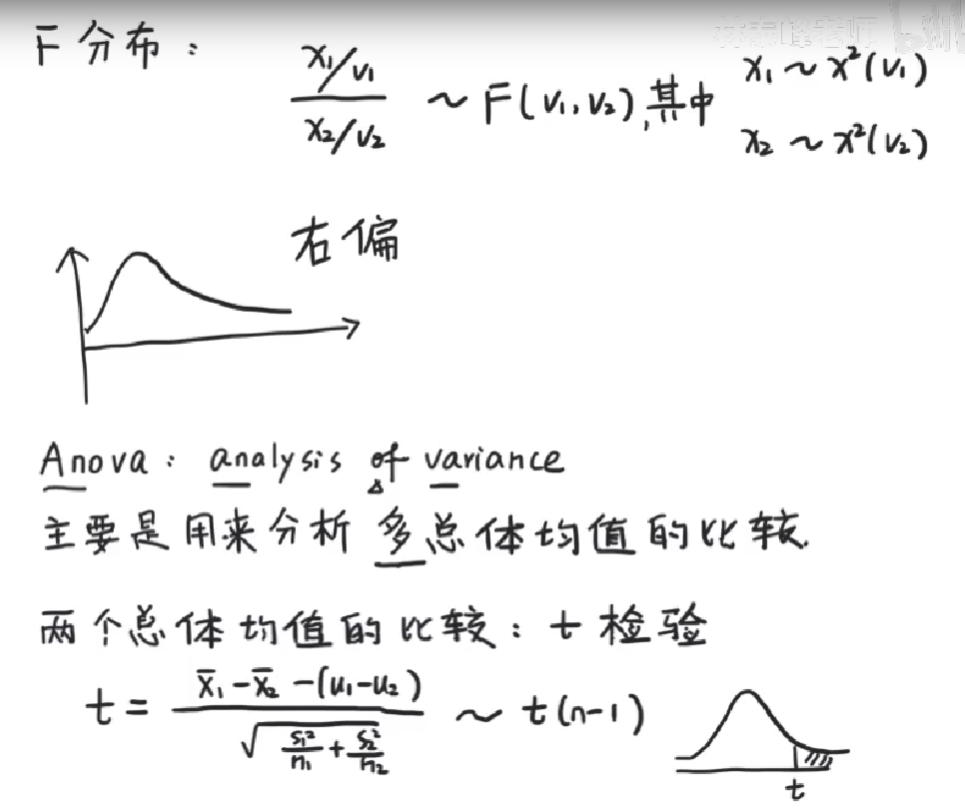 F分布：
x₁/v₁
x₂/v₂
~ F(v₁,v₂), 其中
x₁ ~ x²(v₁)
x₂ ~ x²(v₂)
右偏
Anova：analysis of variance
主要是用来分析 多总体均值的比较.
两个总体均值的比较：t检验
t = (x̄₁-x̄₂-(u₁-u₂)) / √(s₁²/n₁ + s₂²/n₂) ~ t(n-1)
t